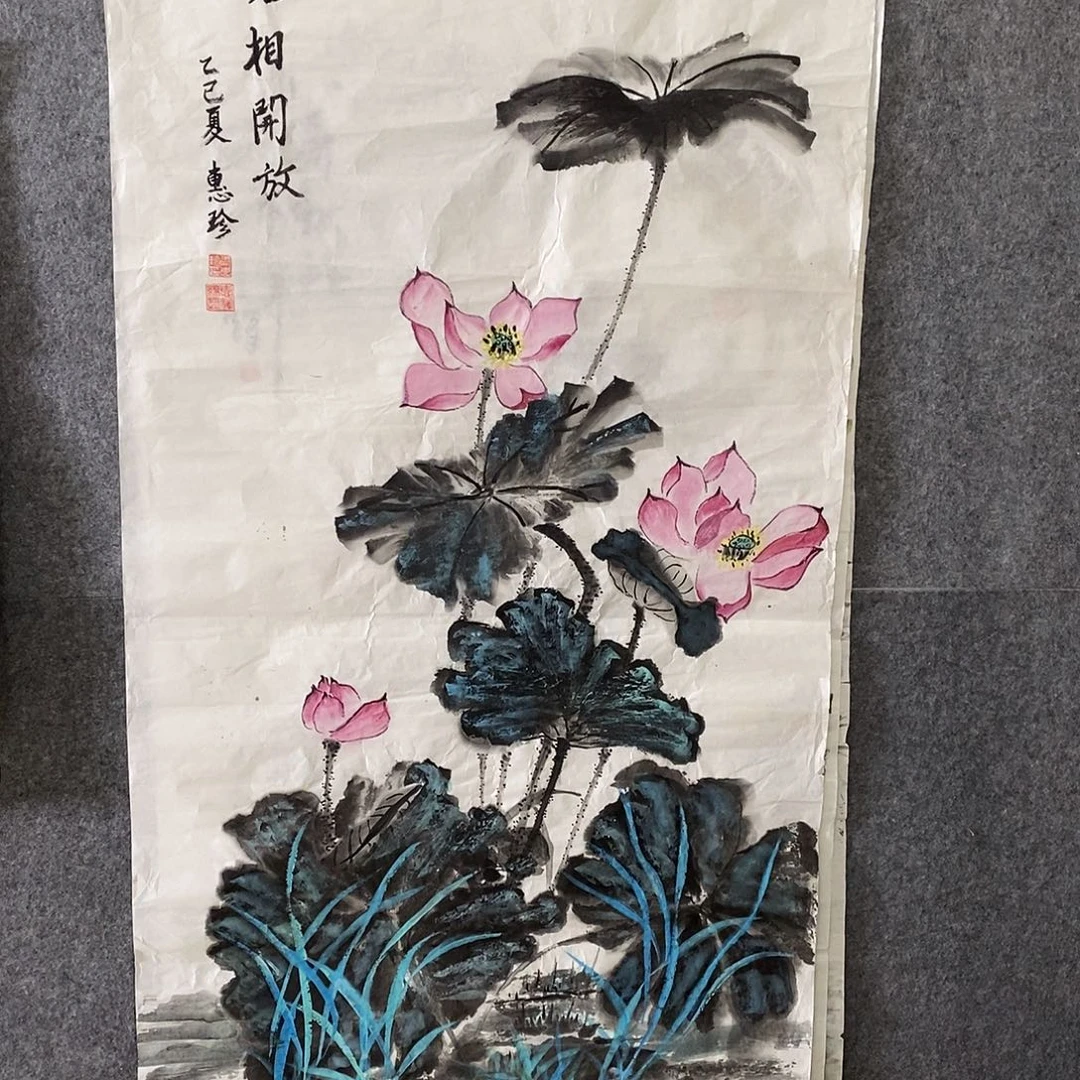 相開放
乙巳夏 惠珍